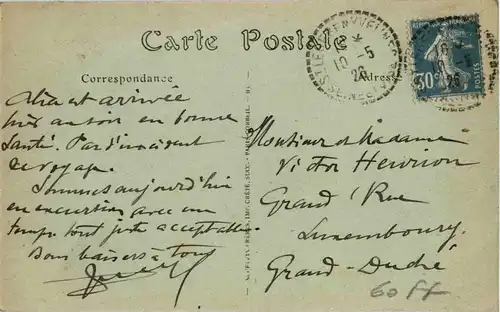 Carte Postale
Correspondance
Adresse
et arrivée
hier au soir en bonne
santé. Pas d'incident
de voyage.
Sommes aujourd'hui
en excursion avec un
temps tout juste acceptable.
Bons baisers à tous
Monsieur et Madame
Victor Henrion
Grand'Rue
Luxembourg
Grand-Duché
60 FF
10 - 5
26
30c
POSTES